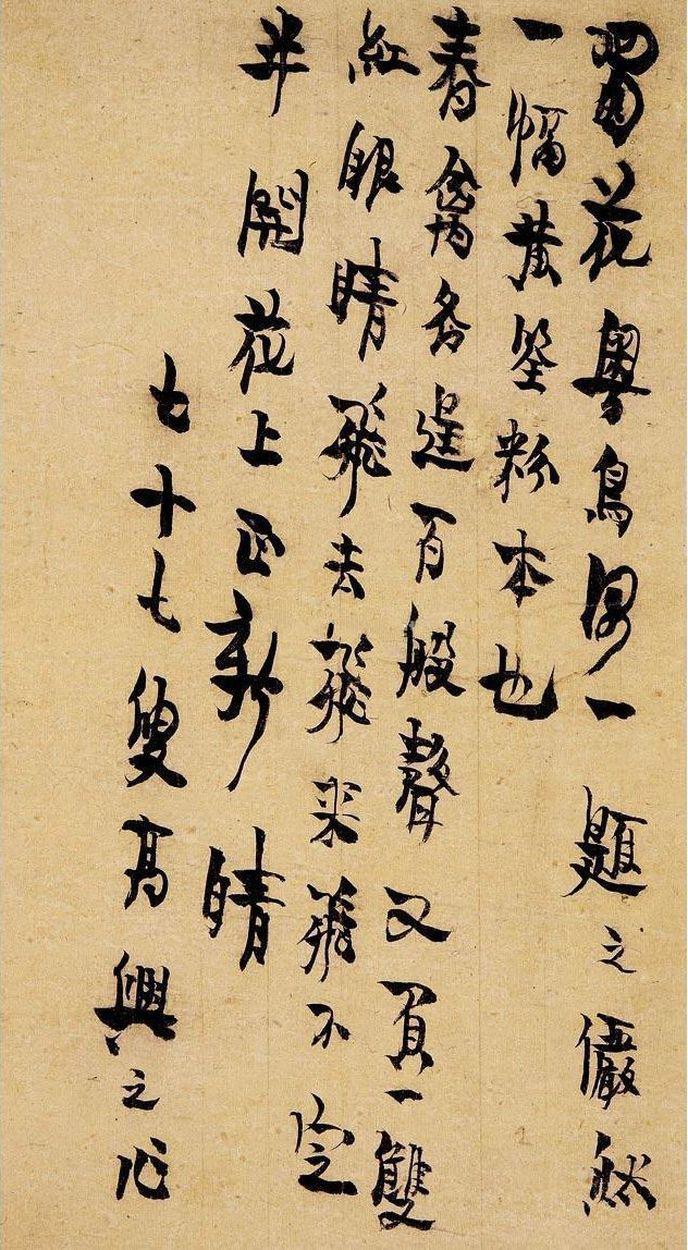 蜀花粤鳥偶一題之儼然
一幅黄筌粉本也
春禽各逞百般聲又一雙
紅眼睛飛去飛来飛不定
半開花上正新晴
七十七叟高興之作